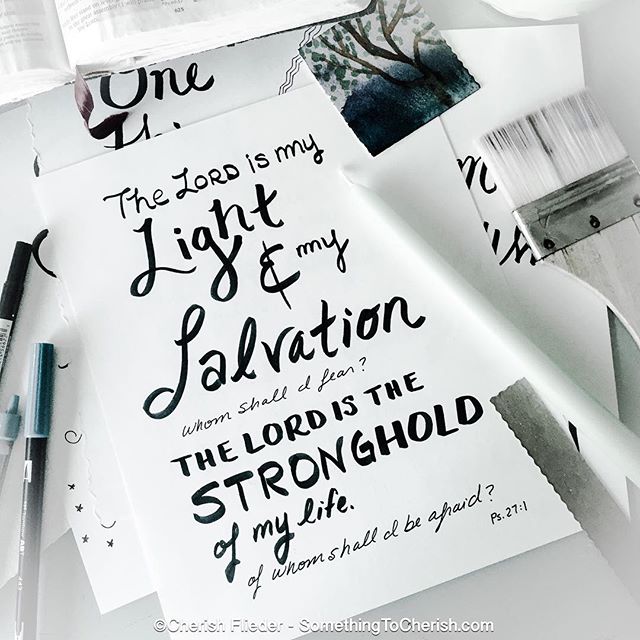 One
The LORD is my
Light
& my
Salvation
whom shall I fear?
THE LORD IS THE
STRONGHOLD
of my life.
of whom shall I be afraid?
Ps. 27:1
©Cherish Flieder - SomethingToCherish.com